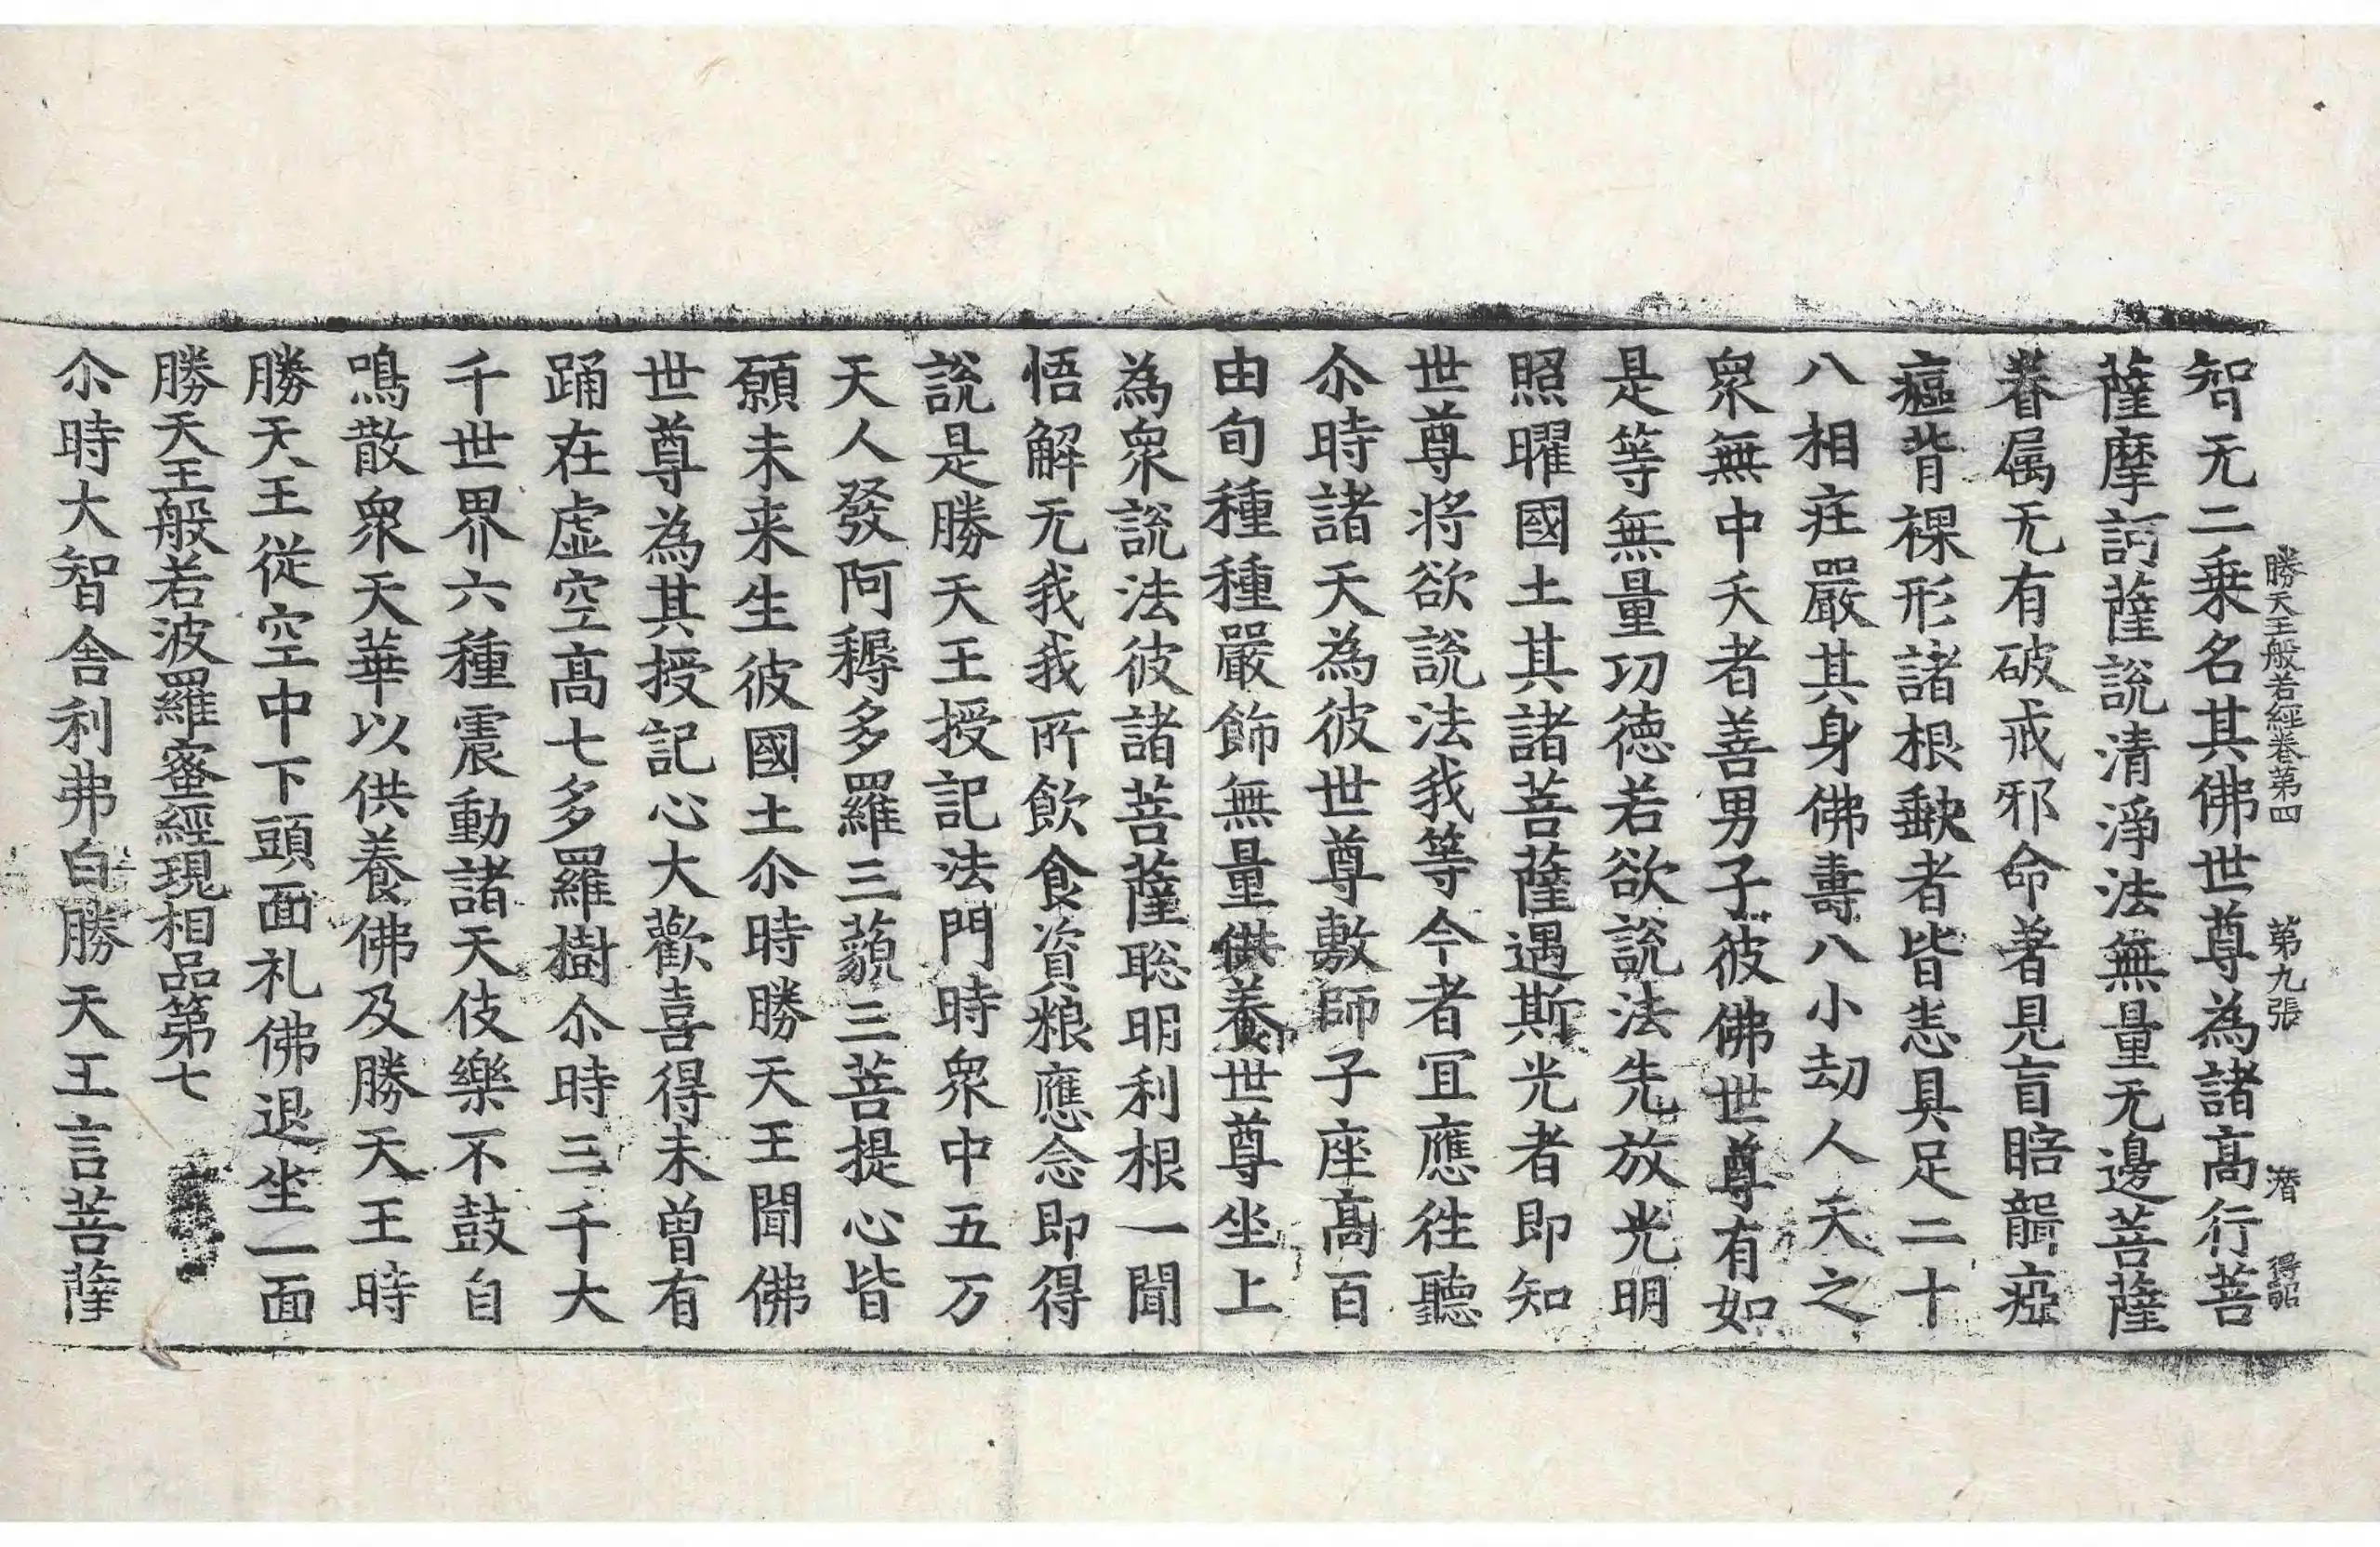 勝天王般若經卷第四　第九張　潛　得詔
智无二乗名其佛世尊為諸髙行菩
薩摩訶薩說清淨法無量无邊菩薩
眷属无有破戒邪命著見盲瞎聾瘂
癃背裸形諸根缺者皆悉具足二十
八相庄嚴其身佛壽八小劫人天之
衆無中夭者善男子彼佛世尊有如
是等無量功徳若欲說法先放光明
照曜國土其諸菩薩遇斯光者即知
世尊将欲說法我等今者冝應徃聽
尒時諸天為彼世尊敷師子座髙百
由旬種種嚴飾無量供養世尊坐上
為衆說法彼諸菩薩聡明利根一聞
悟解无我我所飲食資粮應念即得
說是勝天王授記法門時衆中五万
天人發阿耨多羅三藐三菩提心皆
願未来生彼國土尒時勝天王聞佛
世尊為其授記心大歡喜得未曽有
踊在虚空髙七多羅樹尒時三千大
千世界六種震動諸天伎樂不鼓自
鳴散衆天華以供養佛及勝天王時
勝天王從空中下頭面礼佛退坐一面
勝天王般若波羅蜜經現相品第七
尒時大智舎利弗白勝天王言菩薩